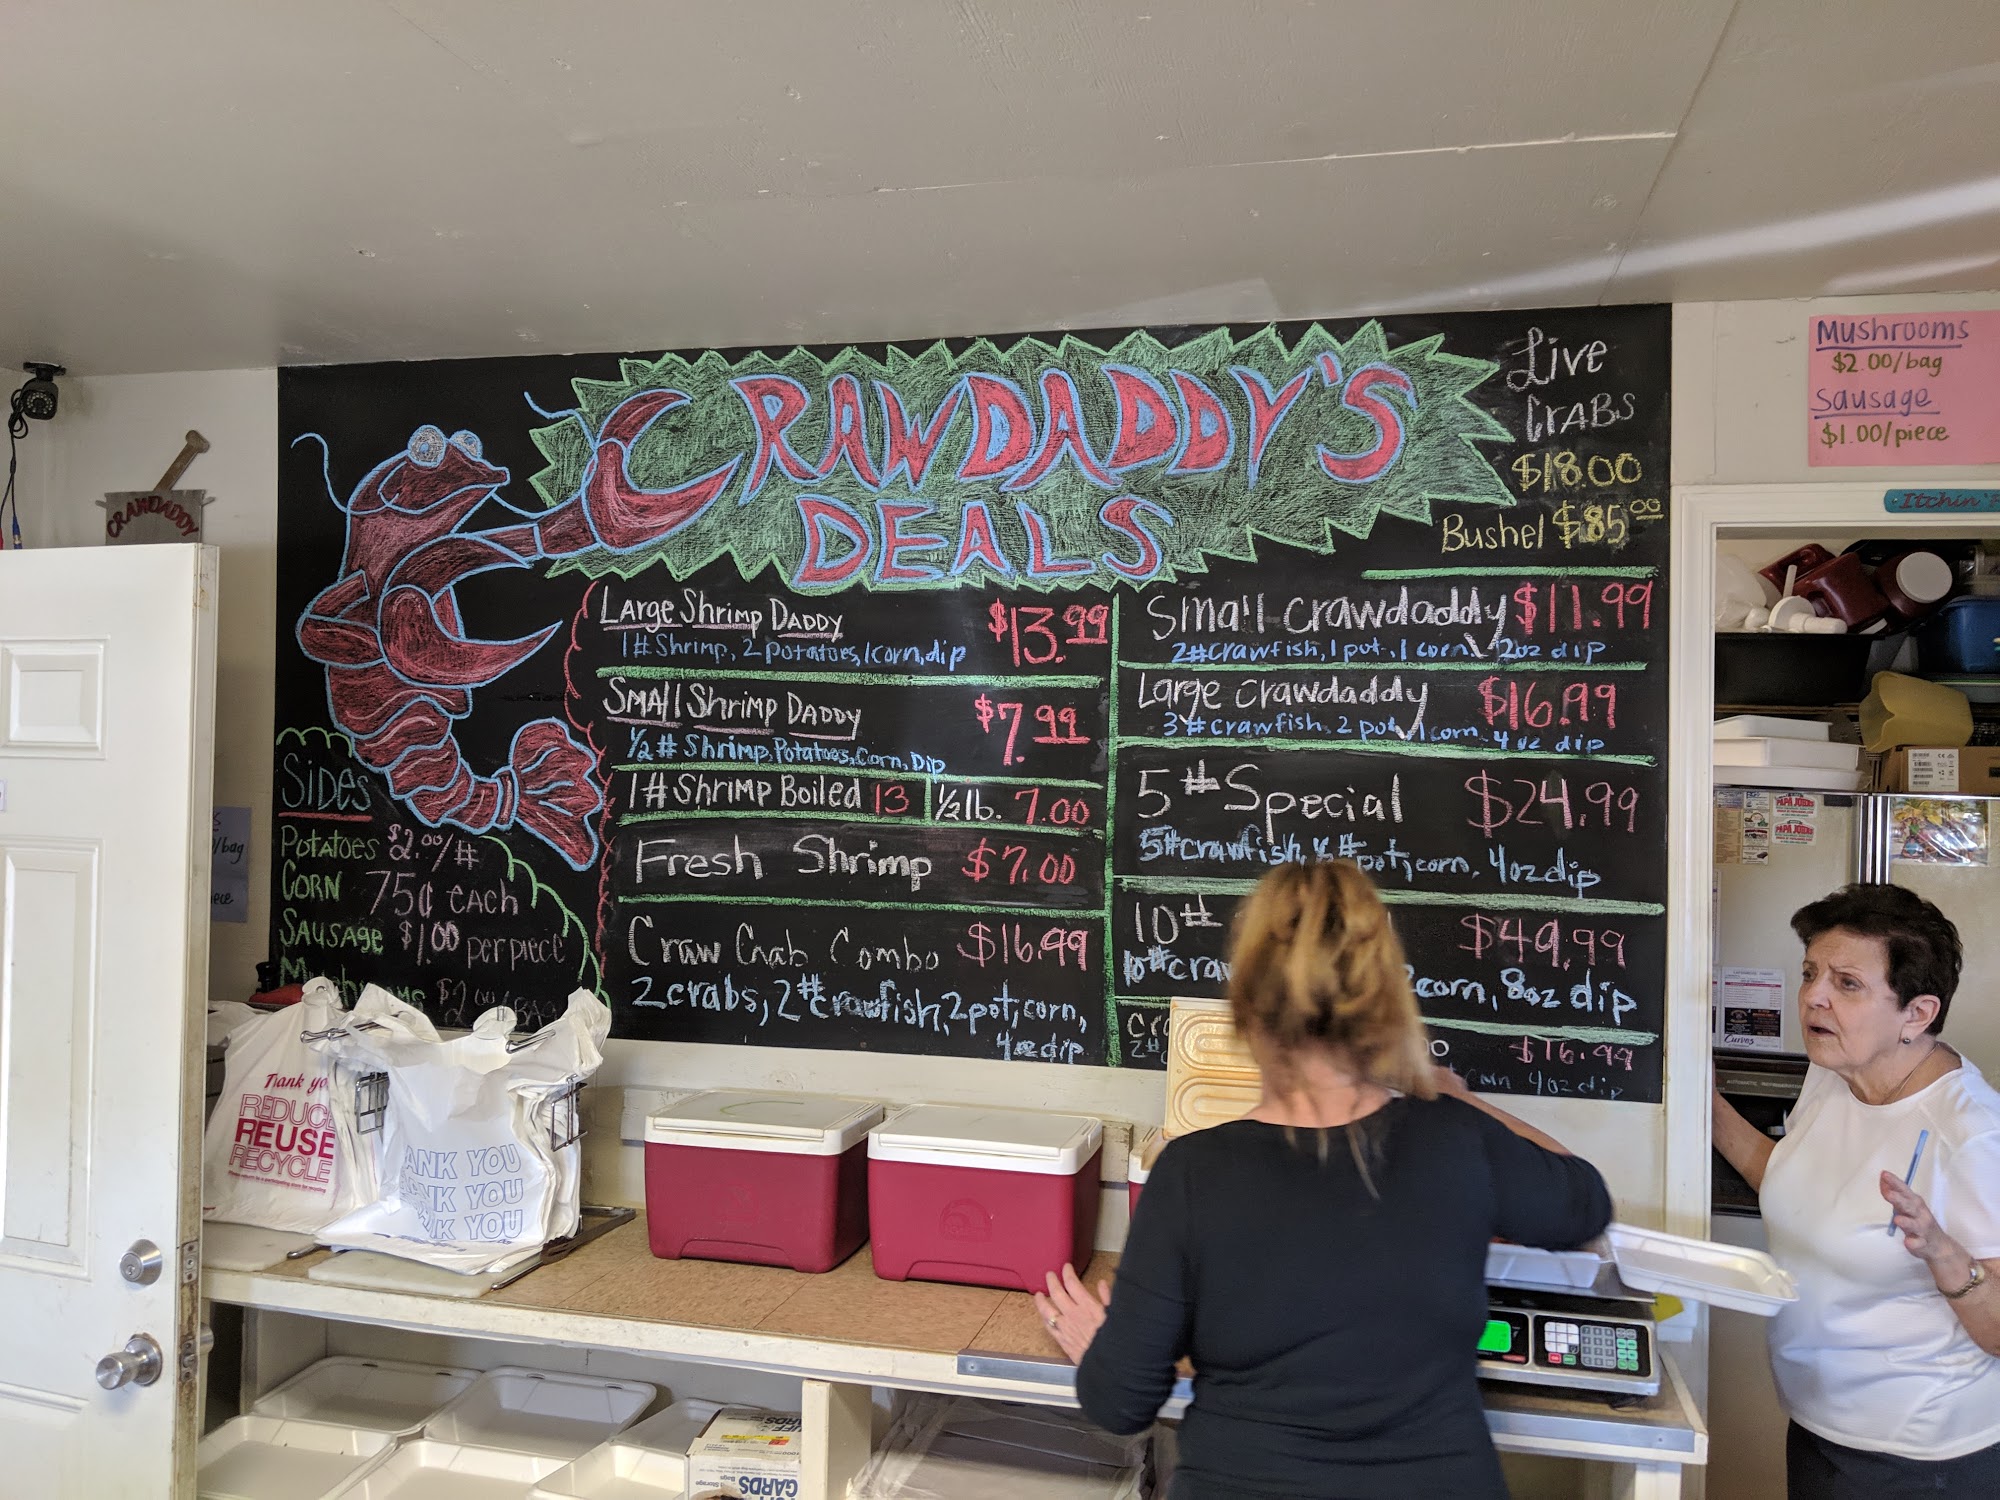 CRAWDADDY'S
DEALS
Live
CRABS
$18.00
Bushel $85.00
Large Shrimp Daddy $13.99
1# Shrimp, 2 potatoes, 1 corn, dip
Small Shrimp Daddy $7.99
1/2 # Shrimp, Potatoes, Corn, Dip
1# Shrimp Boiled 13 1/2 lb. 7.00
Fresh Shrimp $7.00
Craw Crab Combo $16.99
2 crabs, 2# crawfish, 2 pot, corn,
4oz dip
Small Crawdaddy $11.99
2# crawfish, 1 pot, 1 corn, 2oz dip
Large Crawdaddy $16.99
3# crawfish, 2 pot, 1 corn 4 oz dip
5# Special $24.99
5# crawfish, pot, corn, 4oz dip
10# $49.99
10# craw
corn, 8oz dip
$16.99
4oz dip
Sides
Potatoes $2.00/#
Corn 75¢ each
Sausage $1.00 per piece
Mushrooms $2.00/BAG
CRAWDADDY
/bag
Mushrooms
$2.00/bag
Sausage
$1.00/piece
Itchin'
Thank yo
REDUCE
REUSE
RECYCLE
ANK YOU
ANK YOU
NK YOU
PAPA JOHN'S
PAPA JOHN'S
Curves
GARDS